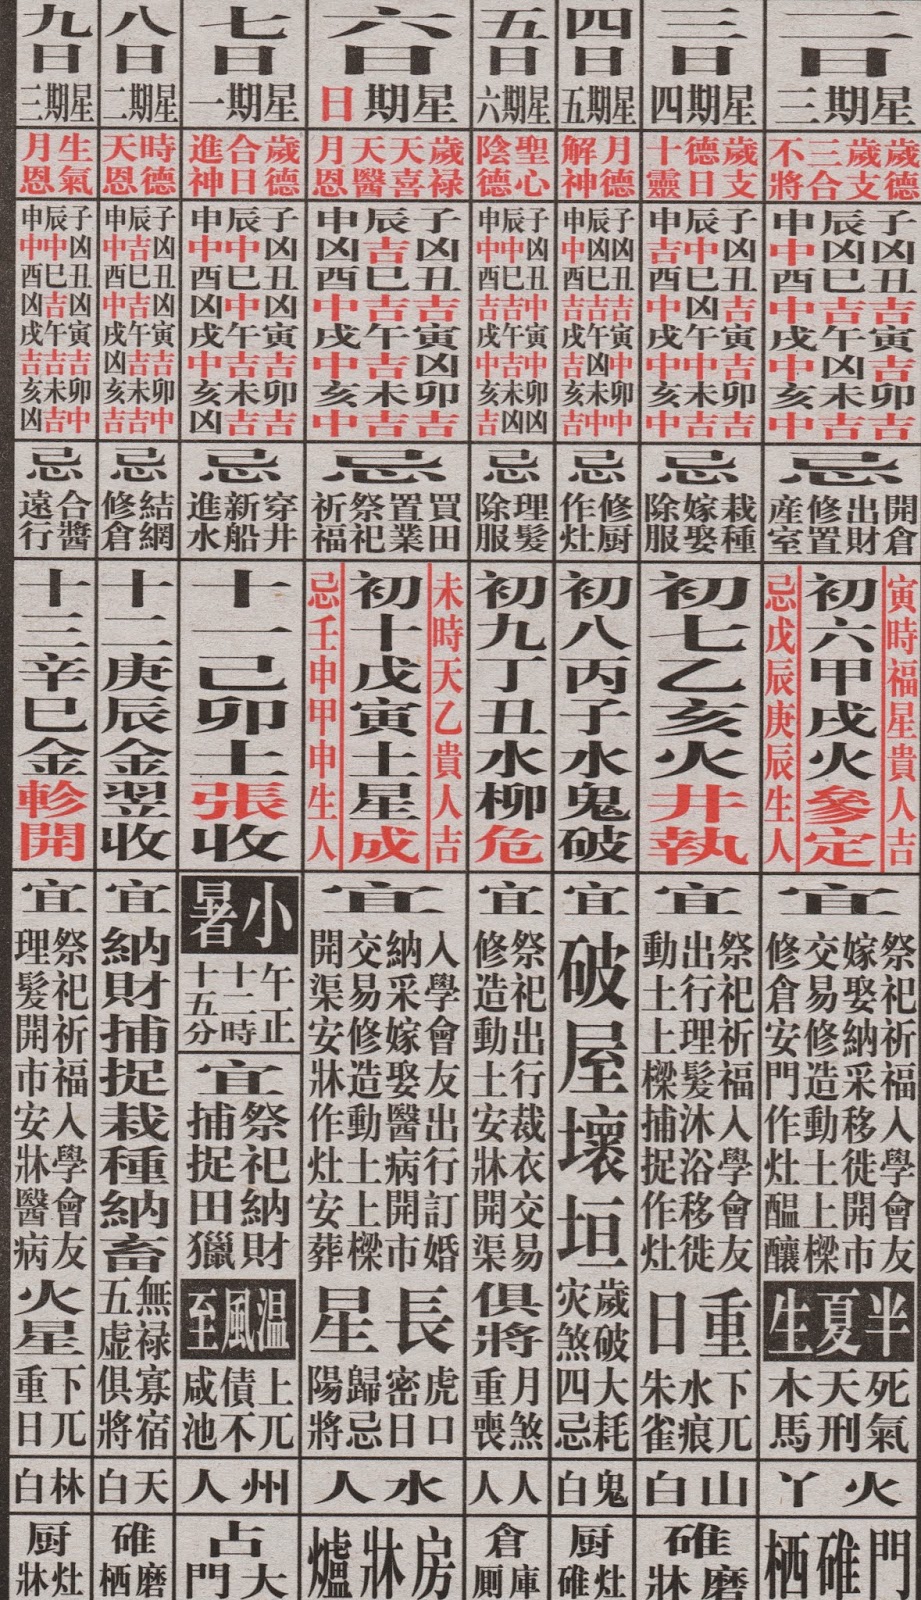 二日
星期三
歲德
歲支
三合
不將
子凶丑吉寅吉卯吉
辰凶巳吉午凶未吉
申中酉中戌中亥中
忌
開倉
出財
修置
産室
寅時福星貴人吉
初六甲戌火參定
忌戊辰庚辰生人
宜
祭祀祈福入學會友
嫁娶納采移徙開市
交易修造動土上樑
修倉安門作灶醞釀
半夏生
死氣
天刑
木馬
火丫
門碓栖
三日
星期四
歲支
德日
十靈
子凶丑吉寅吉卯吉
辰中巳凶午中未吉
申吉酉中戌中亥中
忌
栽種
嫁娶
除服
初七乙亥火井執
宜
祭祀祈福入學會友
出行理髮沐浴移徙
動土上樑捕捉作灶
重日
下兀
水痕
朱雀
山白
碓磨牀
四日
星期五
月德
解神
子凶丑吉寅中卯中
辰凶巳吉午凶未中
申中酉吉戌吉亥吉
忌
修厨
作灶
初八丙子水鬼破
宜
破屋壞垣
歲破
灾煞
大耗
四忌
鬼白
厨灶碓
五日
星期六
聖心
陰德
子凶丑中寅中卯凶
辰中巳吉午吉未凶
申中酉吉戌中亥吉
忌
理髮
除服
初九丁丑水柳危
宜
祭祀出行裁衣交易
修造動土安牀開渠
俱將
月煞
重喪
人人
倉庫厠
六日
星期日
歲祿
天喜
天醫
月恩
子凶丑吉寅凶卯吉
辰吉巳吉午吉未吉
申凶酉中戌中亥中
忌
買田
置業
祭祀
祈福
未時天乙貴人吉
初十戊寅土星成
忌壬申甲申生人
宜
入學會友出行訂婚
納采嫁娶醫病開市
交易修造動土上樑
開渠安牀作灶安葬
長星
虎口
密日
歸忌
陽將
水人
房牀爐
七日
星期一
歲德
合日
進神
子凶丑凶寅吉卯吉
辰中巳中午吉未吉
申中酉凶戌中亥凶
忌
穿井
新船
進水
十一己卯土張收
小暑
午正
十二時
十五分
宜
祭祀納財
捕捉田獵
温風至
上兀
債不
咸池
州人
占大門
八日
星期二
時德
天恩
子凶丑凶寅吉卯中
辰吉巳吉午吉未吉
申中酉中戌凶亥吉
忌
結網
修倉
十二庚辰金翌收
宜
納財捕捉栽種納畜
無祿寡宿
五虛俱將
天白
碓磨栖
九日
星期三
生氣
月恩
子凶丑凶寅吉卯中
辰中巳吉午吉未吉
申中酉凶戌吉亥凶
忌
合醬
遠行
十三辛巳金軫開
宜
祭祀祈福入學會友
理髮開市安牀醫病
火星
下兀
重日
林白
厨灶牀